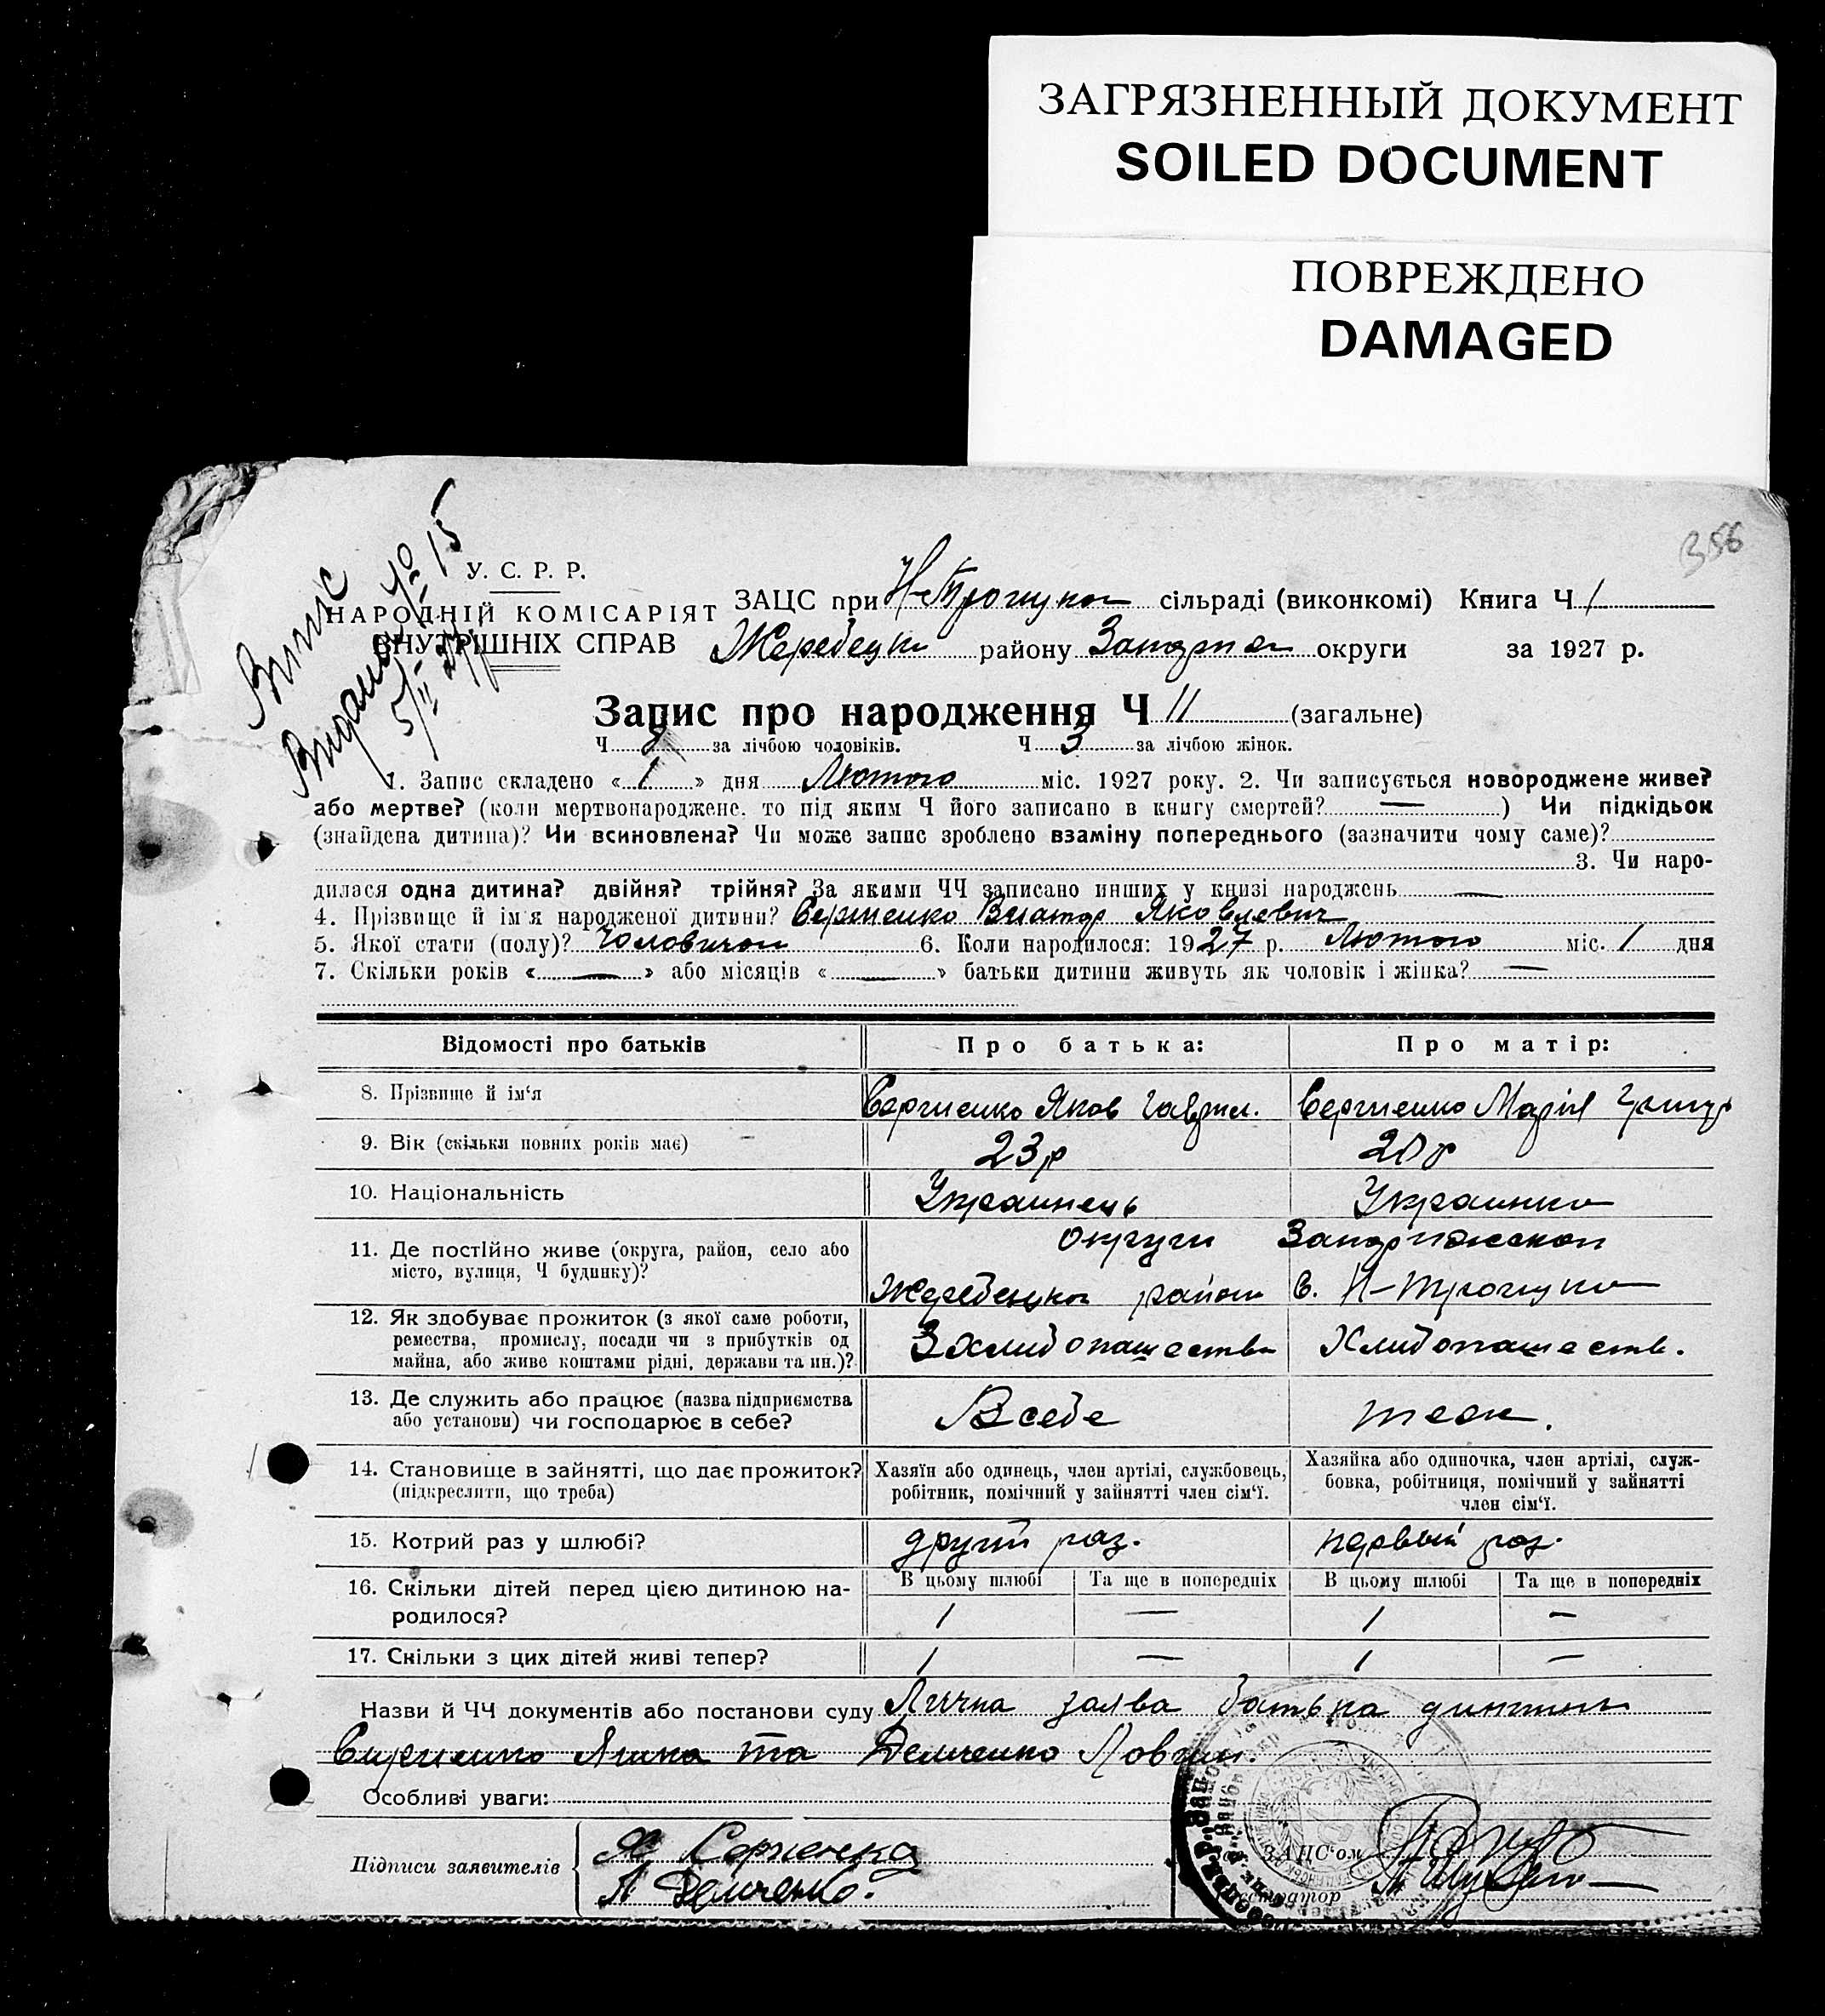 ЗАГРЯЗНЕННЫЙ ДОКУМЕНТ
SOILED DOCUMENT
ПОВРЕЖДЕНО
DAMAGED
356
Випис
Видана № 15
5/II 27
У. С. Р. Р.
НАРОДНІЙ КОМІСАРІЯТ
ВНУТРІШНІХ СПРАВ
ЗАЦС при сільраді (виконкомі) Книга Ч. 1
Жеребецьк району округи за 1927 р.
Запис про народження Ч 11 (загальне)
Ч за лічбою чоловіків. Ч. 3 за лічбою жінок.
1. Запис складено « 1 » дня Лютого міс. 1927 року. 2. Чи записується новороджене живе?
або мертве? (коли мертвонароджене, то під яким Ч його записано в книгу смертей? — ) Чи підкідьок
(знайдена дитина)? Чи всиновлена? Чи може запис зроблено взаміну попереднього (зазначити чому саме)?
3. Чи наро-
дилася одна дитина? двійня? трійня? За якими ЧЧ записано инших у книзі народжень —
4. Прізвище й ім'я народженої дитини? Виктор Яковлевич
5. Якої стати (полу)? 6. Коли народилося: 1927 р. Лютого міс. 1 дня
7. Скільки років « — » або місяців « — » батьки дитини живуть як чоловік і жінка? —
Відомості про батьків Про батька: Про матір:
8. Прізвище й ім'я Сергиенко Яков Гаврил. Сергиенко Марія
9. Вік (скільки повних років має) 23 р 20 р
10. Національність Украинець Украинка
11. Де постійно живе (округа, район, село або
місто, вулиця, Ч будинку)?
округи
район с.
12. Як здобуває прожиток (з якої саме роботи,
ремества, промислу, посади чи з прибутків од
майна, або живе коштами рідні, держави та ин.)?
13. Де служить або працює (назва підприємства
або установи) чи господарює в себе?
В себе теж.
14. Становище в зайнятті, що дає прожиток?
(підкреслити, що треба)
Хазяїн або одинець, член артілі, службовець,
робітник, помічний у зайнятті член сім'ї.
Хазяйка або одиночка, член артілі, служ-
бовка, робітниця, помічний у зайнятті
член сім'ї.
15. Котрий раз у шлюбі? другий раз. первый раз.
16. Скільки дітей перед цією дитиною на-
родилося?
В цьому шлюбі Та ще в попередніх В цьому шлюбі Та ще в попередніх
1 — 1 —
17. Скільки з цих дітей живі тепер? 1 — 1 —
Назви й ЧЧ документів або постанови суду Лична заява батька дитини
та Демченко
Особливі уваги:
Підписи заявителів
Я Сергиенко
Л Демченко.
Зав. ЗАЦС'ом
Реєстратор